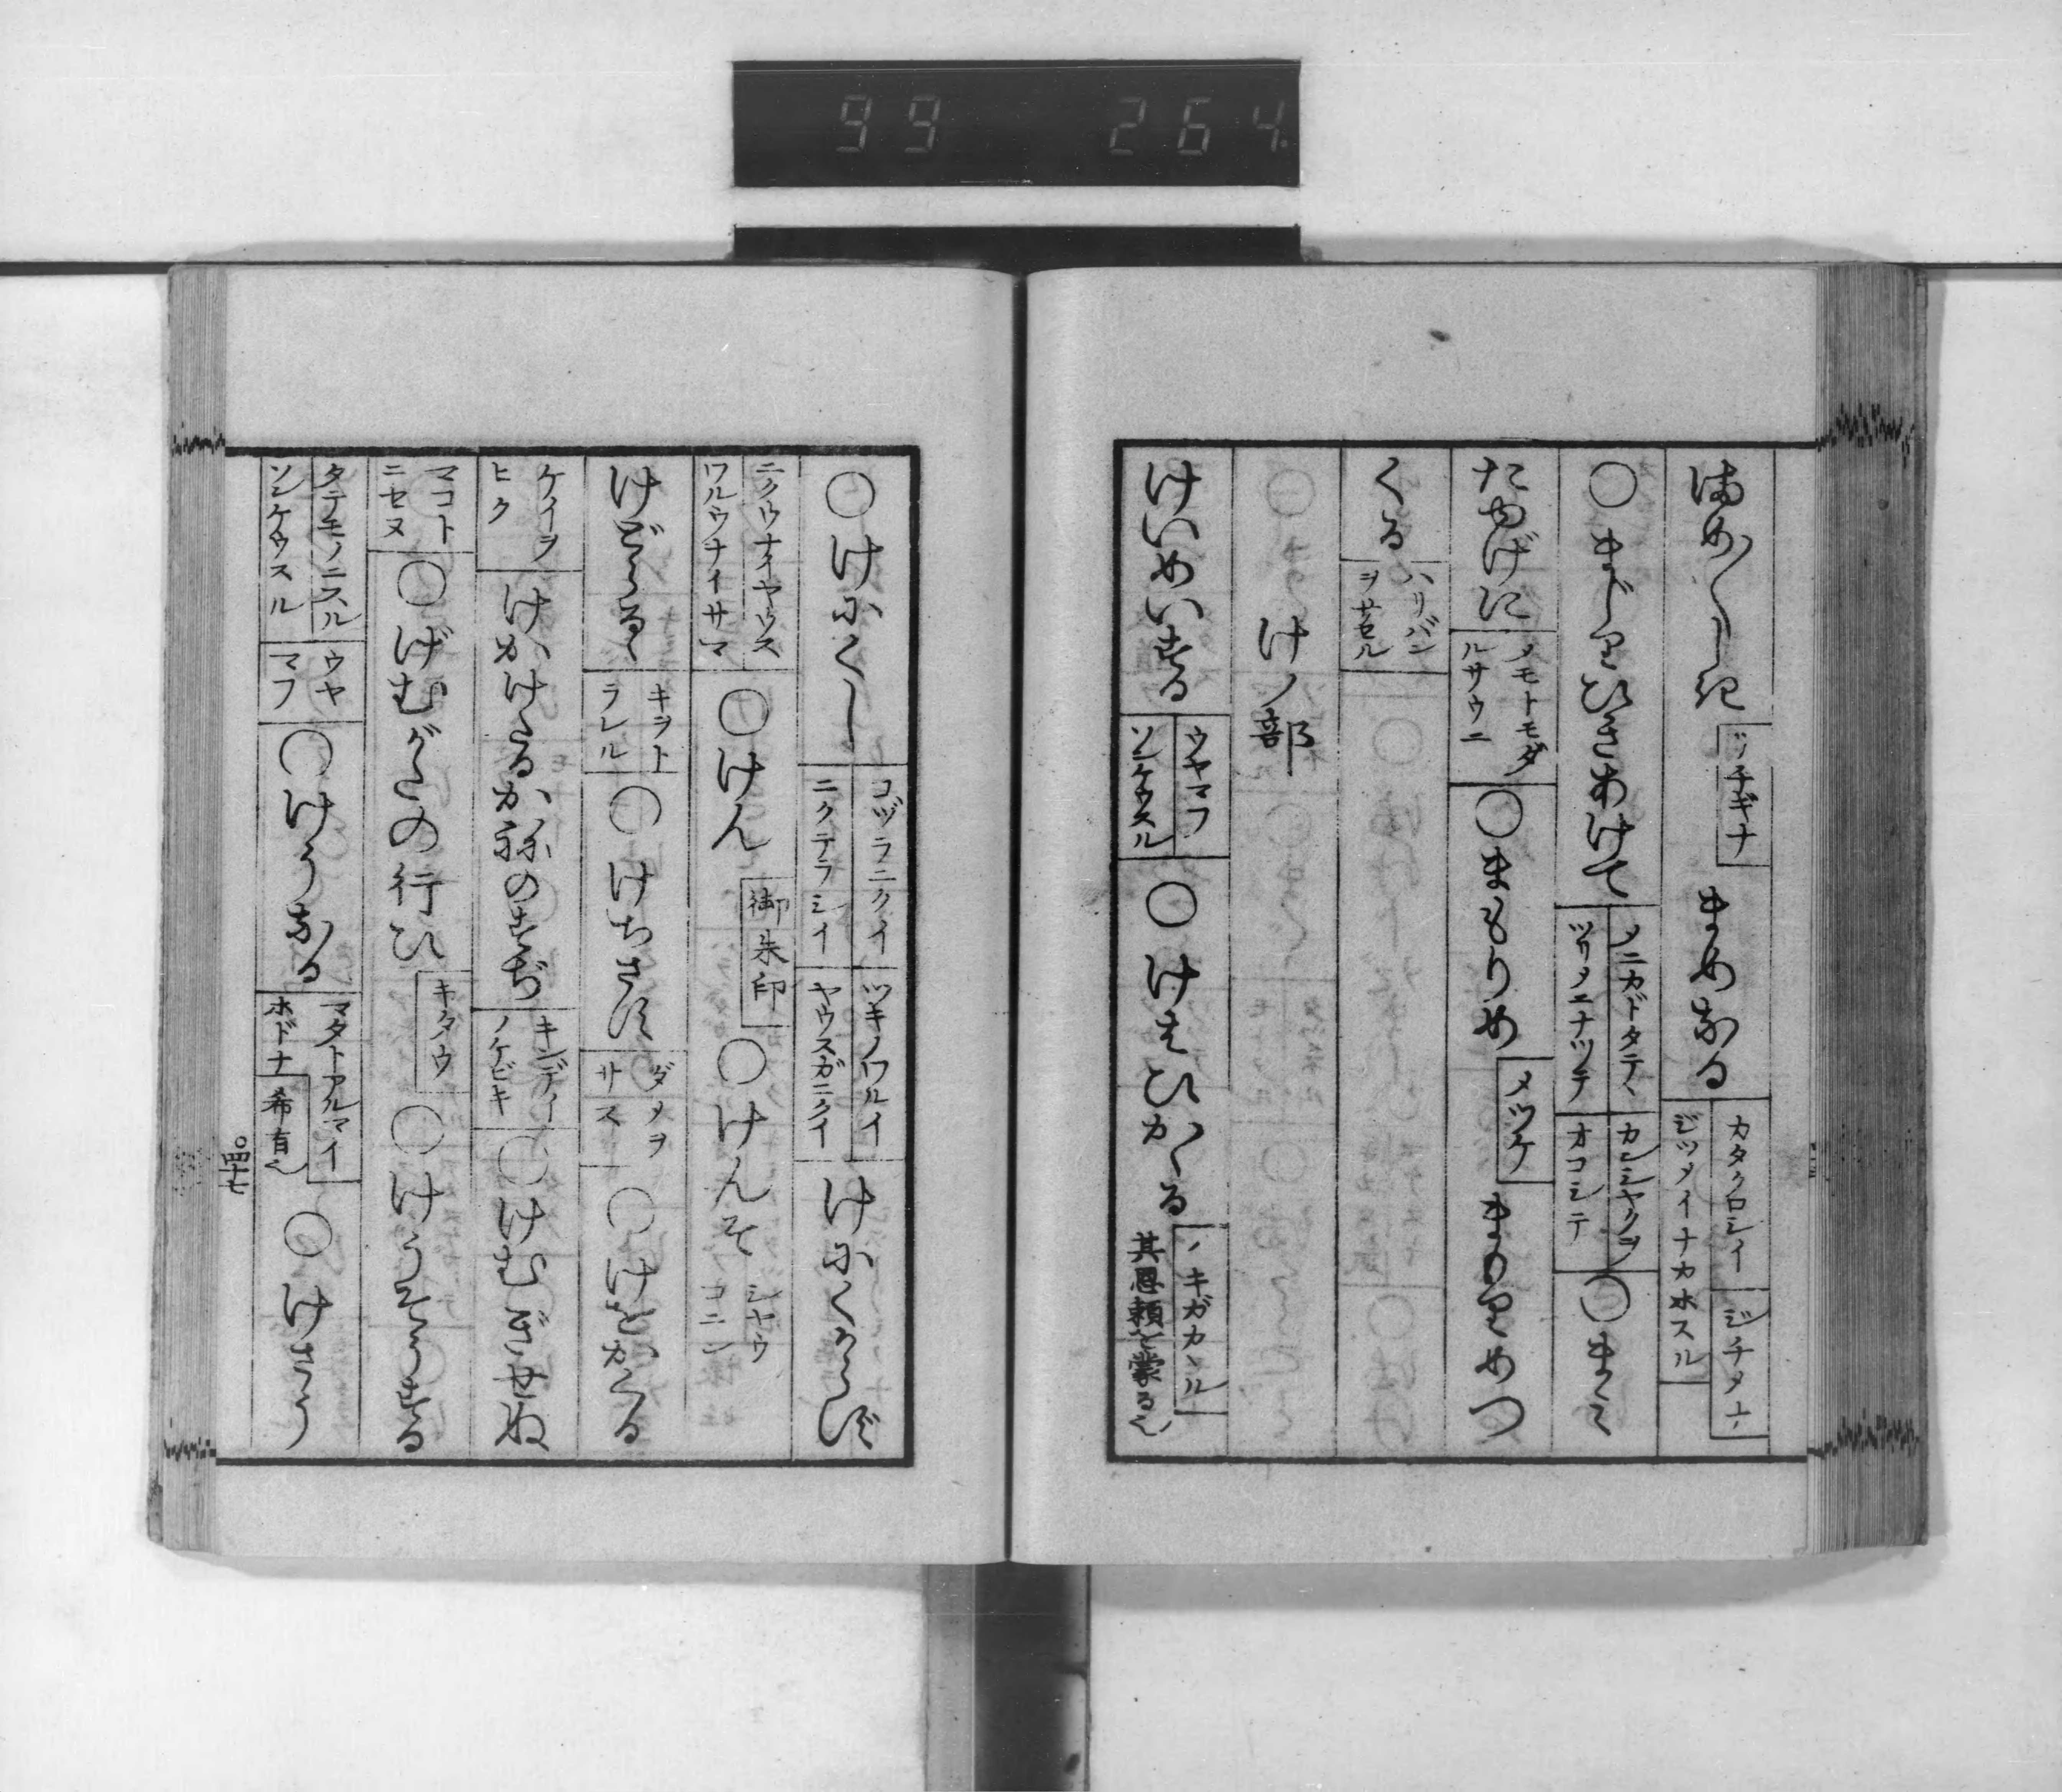 99 264.
まめ〳〵しき
ジチギナ
まめなる
カタクロシイ
ジツメイナカホスル
ジチメナ
○まじりひきあけて
メニカドタテヽ
ツリメニナツテ
カンシヤクヲ
オコシテ
○まく
たゆげに
メモトモダ
ルサウニ
○まもりめ
メツケ
まもりめつ
くる
ハリバン
ヲサセル
けノ部
けいめいする
ウヤマフ
ソンケウスル
○けはひかゝる
ノキガカヽル
其恩頼を蒙る也
○けにくし
コヅラニクイ
ニクテラシイ
ツキノワルイ
ヤウスガニクイ
けにくからず
ニクウナイヤウス
ワルウナイサマ
○けん
御朱印
○けんそ
シヤウ
コニン
けどらるゝ
キヲト
ラレル
○けちさす
ダメヲ
サス
○けをかくる
ケイヲ
ヒク
けかけたるかねのすぢ
キンデイ
ノケビキ
○けむぎせぬ
マコト
ニセヌ
○げむがたの行ひ
キタウ
○けうそうする
タテモノニスル
ソンケウスル
ウヤ
マフ
○けうなる
マタトアルマイ
ホドナ
希有也
○けさう
○四十七